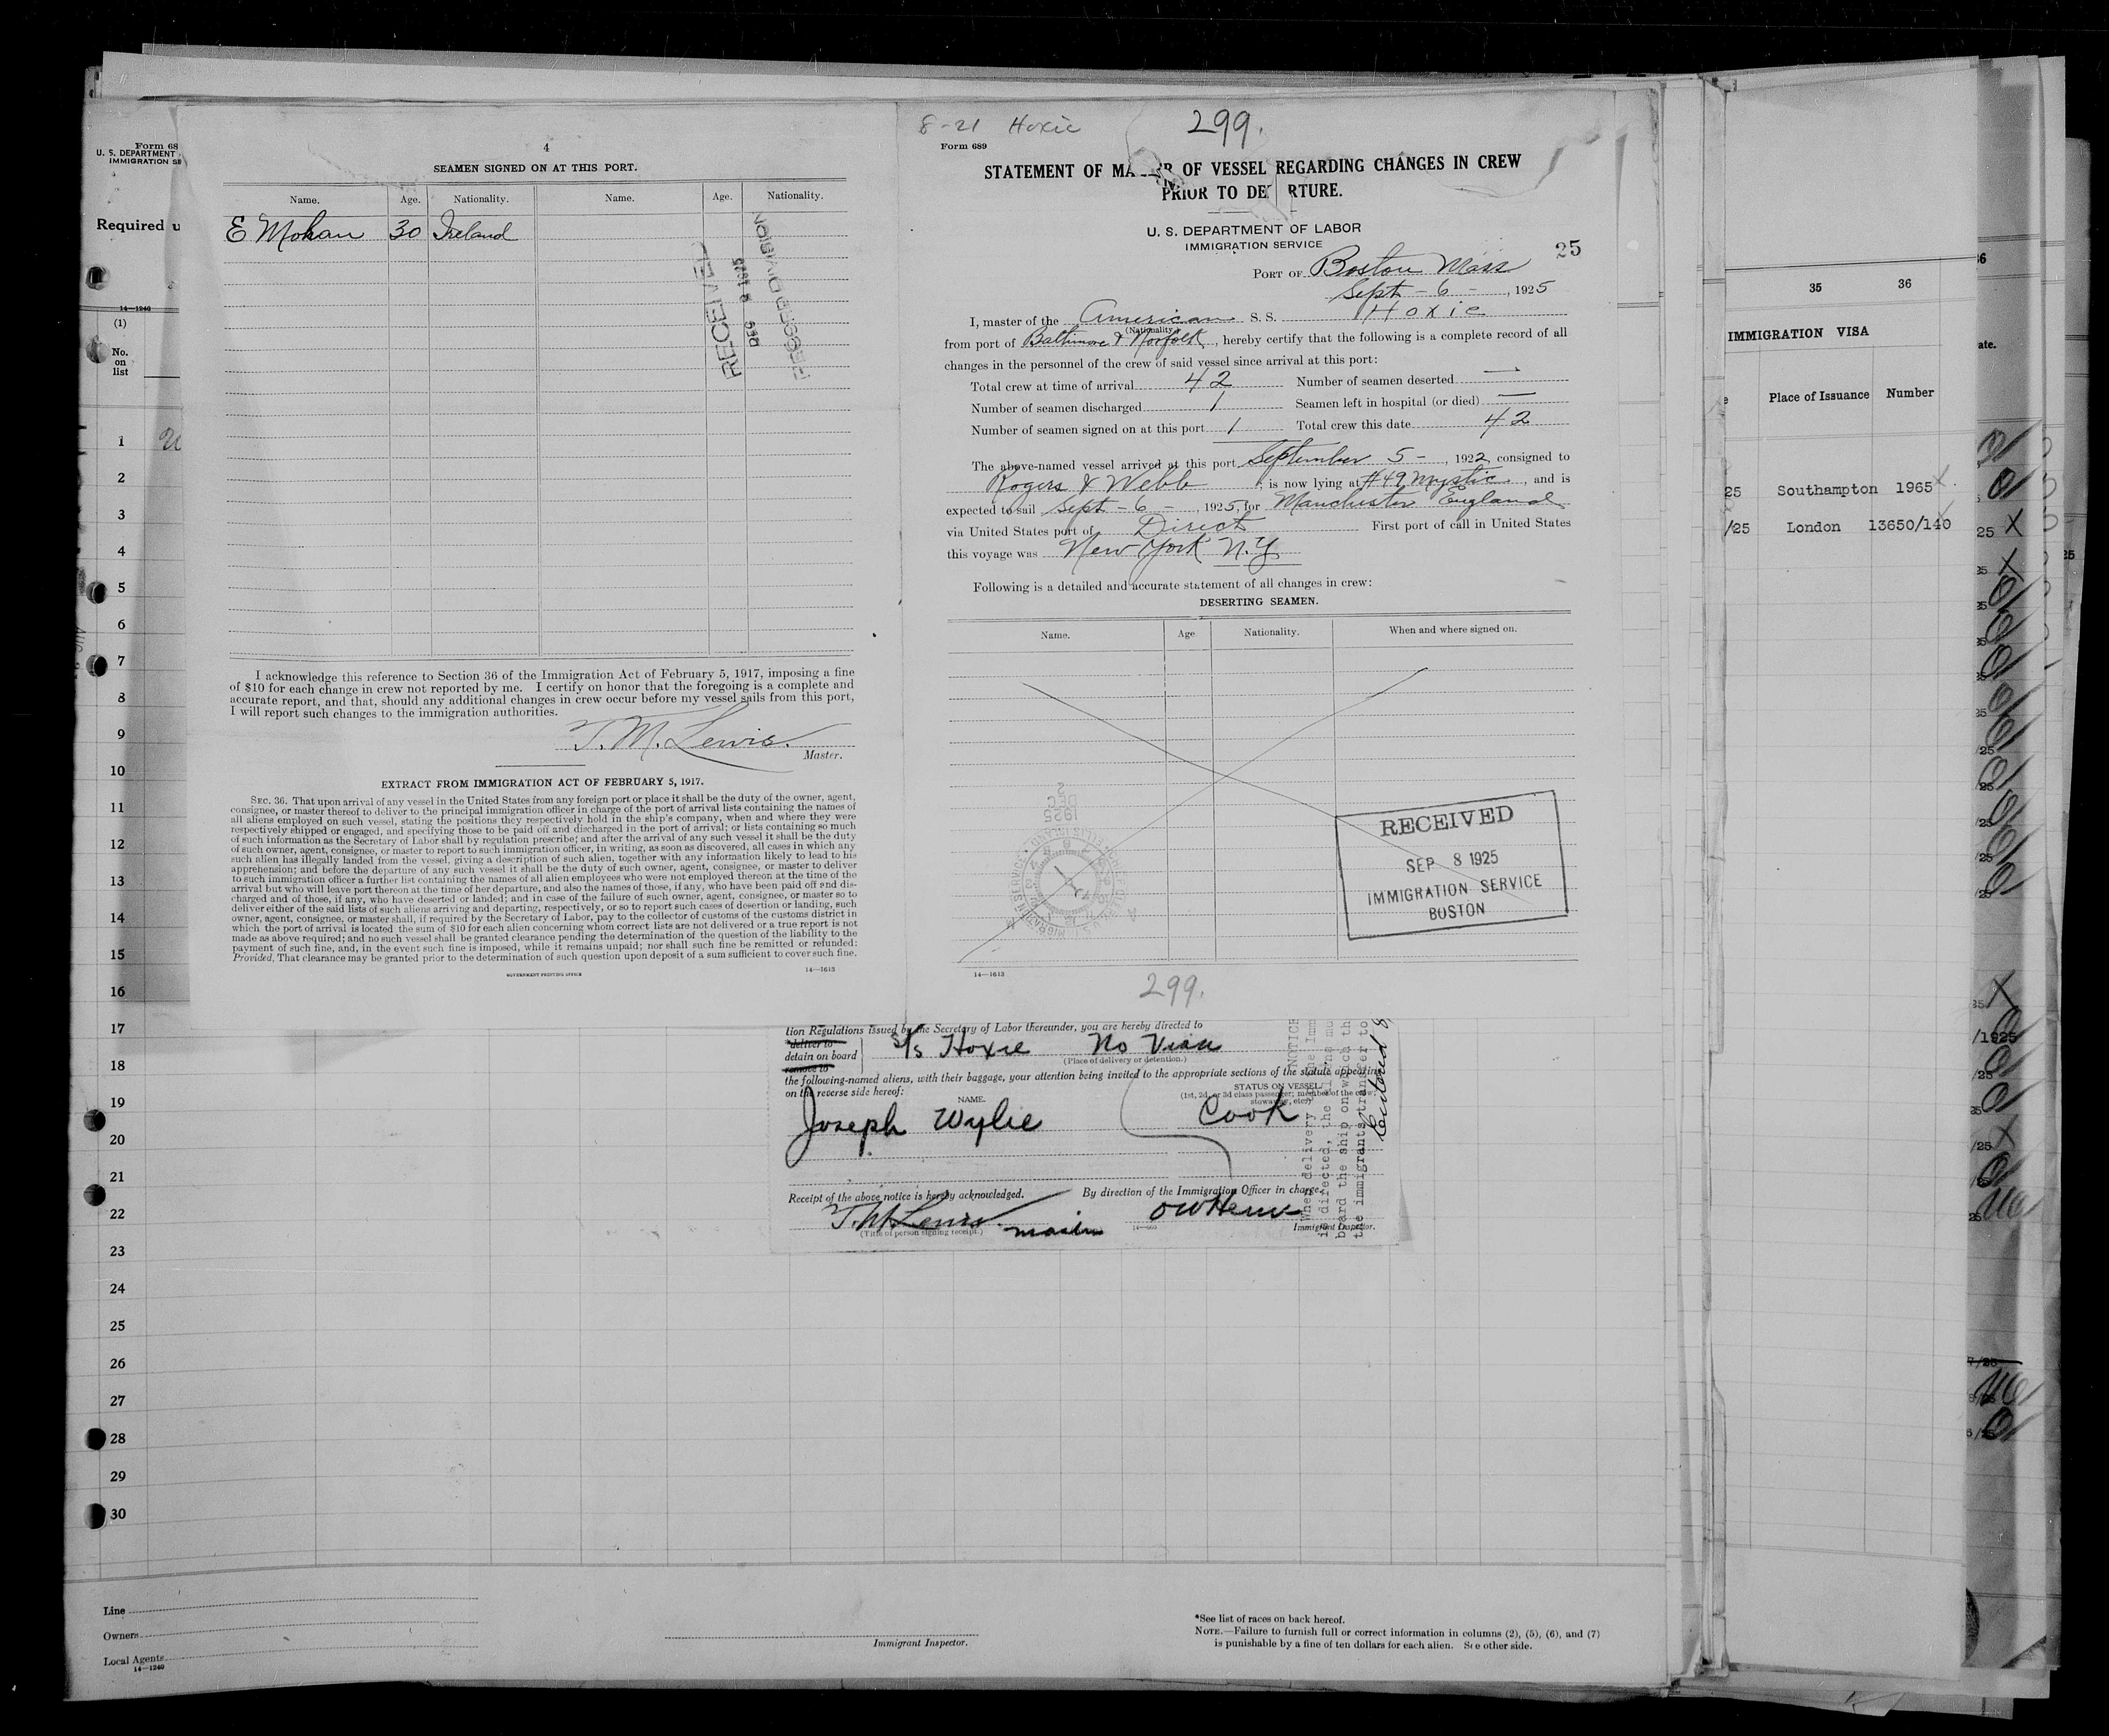 Form 68
U. S. DEPARTMENT
IMMIGRATION SE
Required u
14—1240
(1)
No.
on
list
1
2
3
4
5
6
7
8
9
10
11
12
13
14
15
16
17
18
19
20
21
22
23
24
25
26
27
28
29
30
Line
Owners
Local Agents
14—1240
Immigrant Inspector.
*See list of races on back hereof.
NOTE.—Failure to furnish full or correct information in columns (2), (5), (6), and (7)
is punishable by a fine of ten dollars for each alien. See other side.
4
SEAMEN SIGNED ON AT THIS PORT.
Name. Age. Nationality. Name. Age. Nationality.
E Mohan 30 Ireland
RECEIVED
I acknowledge this reference to Section 36 of the Immigration Act of February 5, 1917, imposing a fine
of $10 for each change in crew not reported by me. I certify on honor that the foregoing is a complete and
accurate report, and that, should any additional changes in crew occur before my vessel sails from this port,
I will report such changes to the immigration authorities.
T. M. Lewis.
Master.
EXTRACT FROM IMMIGRATION ACT OF FEBRUARY 5, 1917.
SEC. 36. That upon arrival of any vessel in the United States from any foreign port or place it shall be the duty of the owner, agent,
consignee, or master thereof to deliver to the principal immigration officer in charge of the port of arrival lists containing the names of
all aliens employed on such vessel, stating the positions they respectively hold in the ship's company, when and where they were
respectively shipped or engaged, and specifying those to be paid off and discharged in the port of arrival; or lists containing so much
of such information as the Secretary of Labor shall by regulation prescribe; and after the arrival of any such vessel it shall be the duty
of such owner, agent, consignee, or master to report to such immigration officer, in writing, as soon as discovered, all cases in which any
such alien has illegally landed from the vessel, giving a description of such alien, together with any information likely to lead to his
apprehension; and before the departure of any such vessel it shall be the duty of such owner, agent, consignee, or master to deliver
to such immigration officer a further list containing the names of all alien employees who were not employed thereon at the time of the
arrival but who will leave port thereon at the time of her departure, and also the names of those, if any, who have been paid off and dis-
charged and of those, if any, who have deserted or landed; and in case of the failure of such owner, agent, consignee, or master so to
deliver either of the said lists of such aliens arriving and departing, respectively, or so to report such cases of desertion or landing, such
owner, agent, consignee, or master shall, if required by the Secretary of Labor, pay to the collector of customs of the customs district in
which the port of arrival is located the sum of $10 for each alien concerning whom correct lists are not delivered or a true report is not
made as above required; and no such vessel shall be granted clearance pending the determination of the question of the liability to the
payment of such fine, and, in the event such fine is imposed, while it remains unpaid; nor shall such fine be remitted or refunded:
Provided, That clearance may be granted prior to the determination of such question upon deposit of a sum sufficient to cover such fine.
GOVERNMENT PRINTING OFFICE
14—1613
8-21 Hoxie
299.
Form 689
STATEMENT OF MA R OF VESSEL REGARDING CHANGES IN CREW
PRIOR TO DE RTURE.
U. S. DEPARTMENT OF LABOR
IMMIGRATION SERVICE
25
PORT OF Boston Mass
Sept - 6 - , 1925
I, master of the American S. S. Hoxie
(Nationality.)
from port of Baltimore & Norfolk, hereby certify that the following is a complete record of all
changes in the personnel of the crew of said vessel since arrival at this port:
Total crew at time of arrival 42 Number of seamen deserted —
Number of seamen discharged 1 Seamen left in hospital (or died) —
Number of seamen signed on at this port 1 Total crew this date 42
The above-named vessel arrived at this port September 5 - , 1922, consigned to
Rogers & Webb, is now lying at #49 Mystic, and is
expected to sail Sept - 6 - , 1925, for Manchester England
via United States port of Direct First port of call in United States
this voyage was New York N.Y.
Following is a detailed and accurate statement of all changes in crew:
DESERTING SEAMEN.
Name. Age Nationality. When and where signed on.
1925
DEC
2
RECEIVED
SEP 8 1925
IMMIGRATION SERVICE
BOSTON
14—1613
299.
tion Regulations issued by the Secretary of Labor thereunder, you are hereby directed to
*deliver to
detain on board
remove to
S/s Hoxie No Visa
(Place of delivery or detention.)
the following-named aliens, with their baggage, your attention being invited to the appropriate sections of the statute appearing
on the reverse side hereof:
NAME.
STATUS ON VESSEL.
(1st, 2d, or 3d class passenger; member of the crew;
stowaway, etc.)
Joseph Wylie Cook
Receipt of the above notice is hereby acknowledged.
By direction of the Immigration Officer in charge.
T. M. Lewis. master
(Title of person signing receipt.)
Immigrant Inspector.
NOTICE
When delivery the Imm
is directed, the aliens mu
board the ship on which th
the immigrants transfer to
35 36
IMMIGRATION VISA
Place of Issuance Number
25 Southampton 1965
/25 London 13650/140
ate.